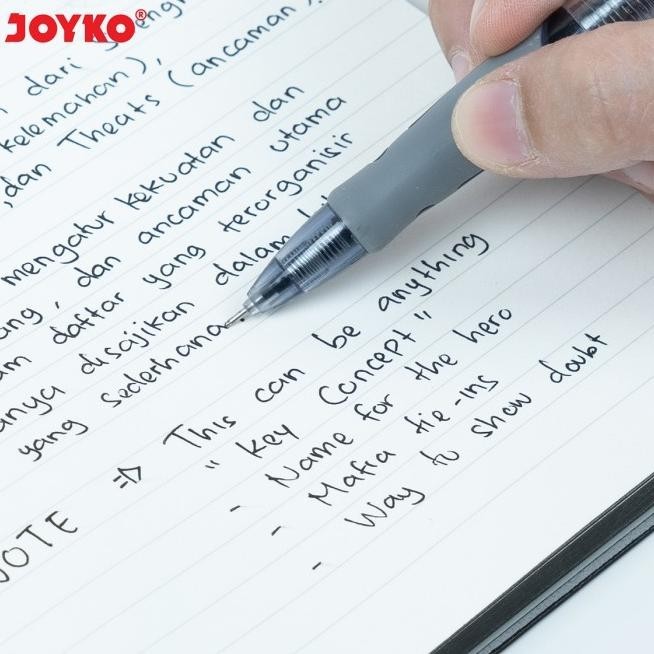 JOYKO®
dari
kelemahan),
,dan Theats (ancaman).
mengatur kekuatan dan
, dan ancaman utama
daftar yang terorganisir
disajikan dalam
yang sederhana
NOTE => This can be anything
"Key Concept"
- Name for the hero
- Mafia tie-ins
- Way to show doubt